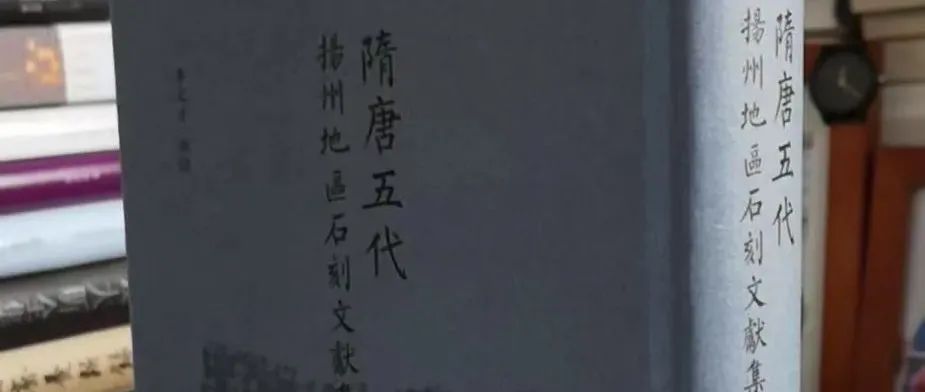 隋唐五代
揚州地區石刻文獻集
隋唐五代
揚州地區石刻文獻集